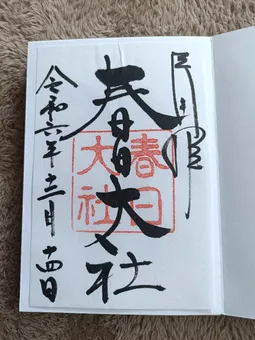 奉拝
春日大社
春日
大社
令和六年十二月十四日